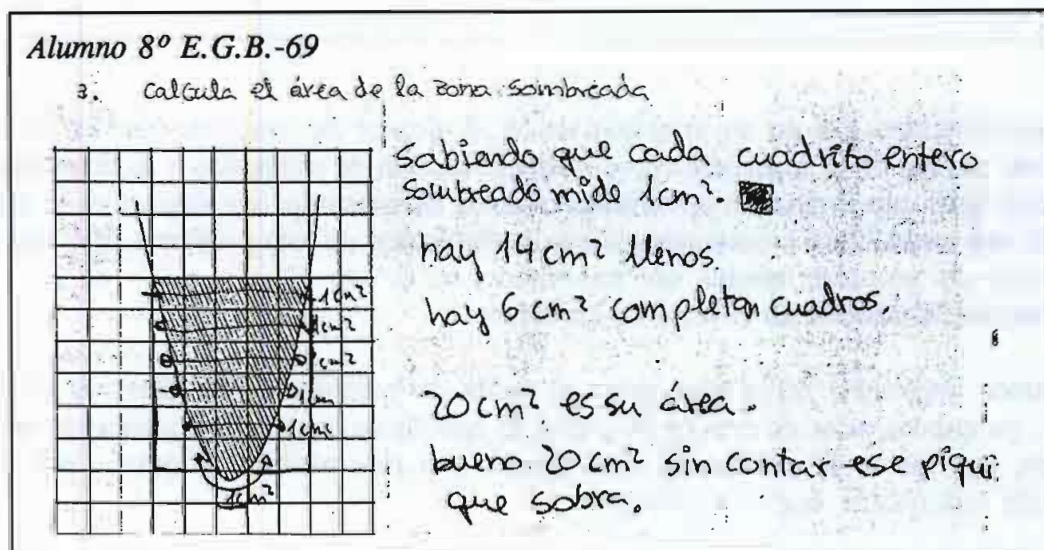 Alumno 8º E.G.B.-69
3. Calcula el área de la zona sombreada
Sabiendo que cada cuadrito entero
sombreado mide 1cm².
hay 14 cm² llenos
hay 6 cm² completan cuadros.
20 cm² es su área.
bueno 20 cm² sin contar ese piqui
que sobra.
1cm²
1cm²
1cm²
1cm
1cm²
1cm²